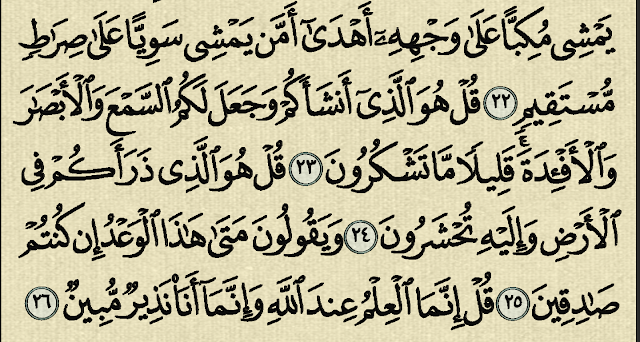 يَمْشِي مُكِبًّا عَلَىٰ وَجْهِهِۦٓ أَهْدَىٰٓ أَمَّن يَمْشِي سَوِيًّا عَلَىٰ صِرَٰطٍ
مُّسْتَقِيمٍ ٢٢ قُلْ هُوَ ٱلَّذِىٓ أَنشَأَكُمْ وَجَعَلَ لَكُمُ ٱلسَّمْعَ وَٱلْأَبْصَٰرَ
وَٱلْأَفْـِٔدَةَۚ قَلِيلًا مَّا تَشْكُرُونَ ٢٣ قُلْ هُوَ ٱلَّذِى ذَرَأَكُمْ فِى
ٱلْأَرْضِ وَإِلَيْهِ تُحْشَرُونَ ٢٤ وَيَقُولُونَ مَتَىٰ هَٰذَا ٱلْوَعْدُ إِن كُنتُمْ
صَٰدِقِينَ ٢٥ قُلْ إِنَّمَا ٱلْعِلْمُ عِندَ ٱللَّهِ وَإِنَّمَآ أَنَا۠ نَذِيرٌ مُّبِينٌ ٢٦